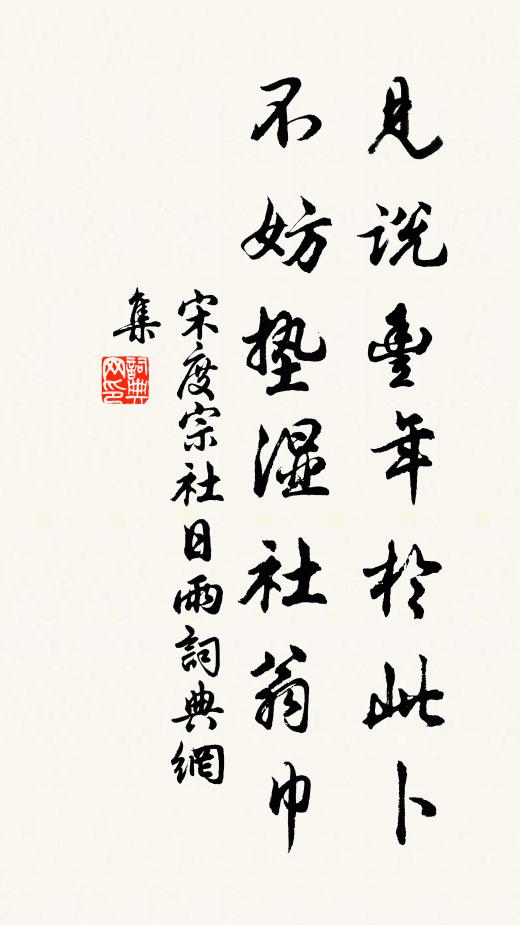 見說豊年於此卜
不妨墊濕社翁巾
宋度宗社日雨詞典網
集
詞典
网印